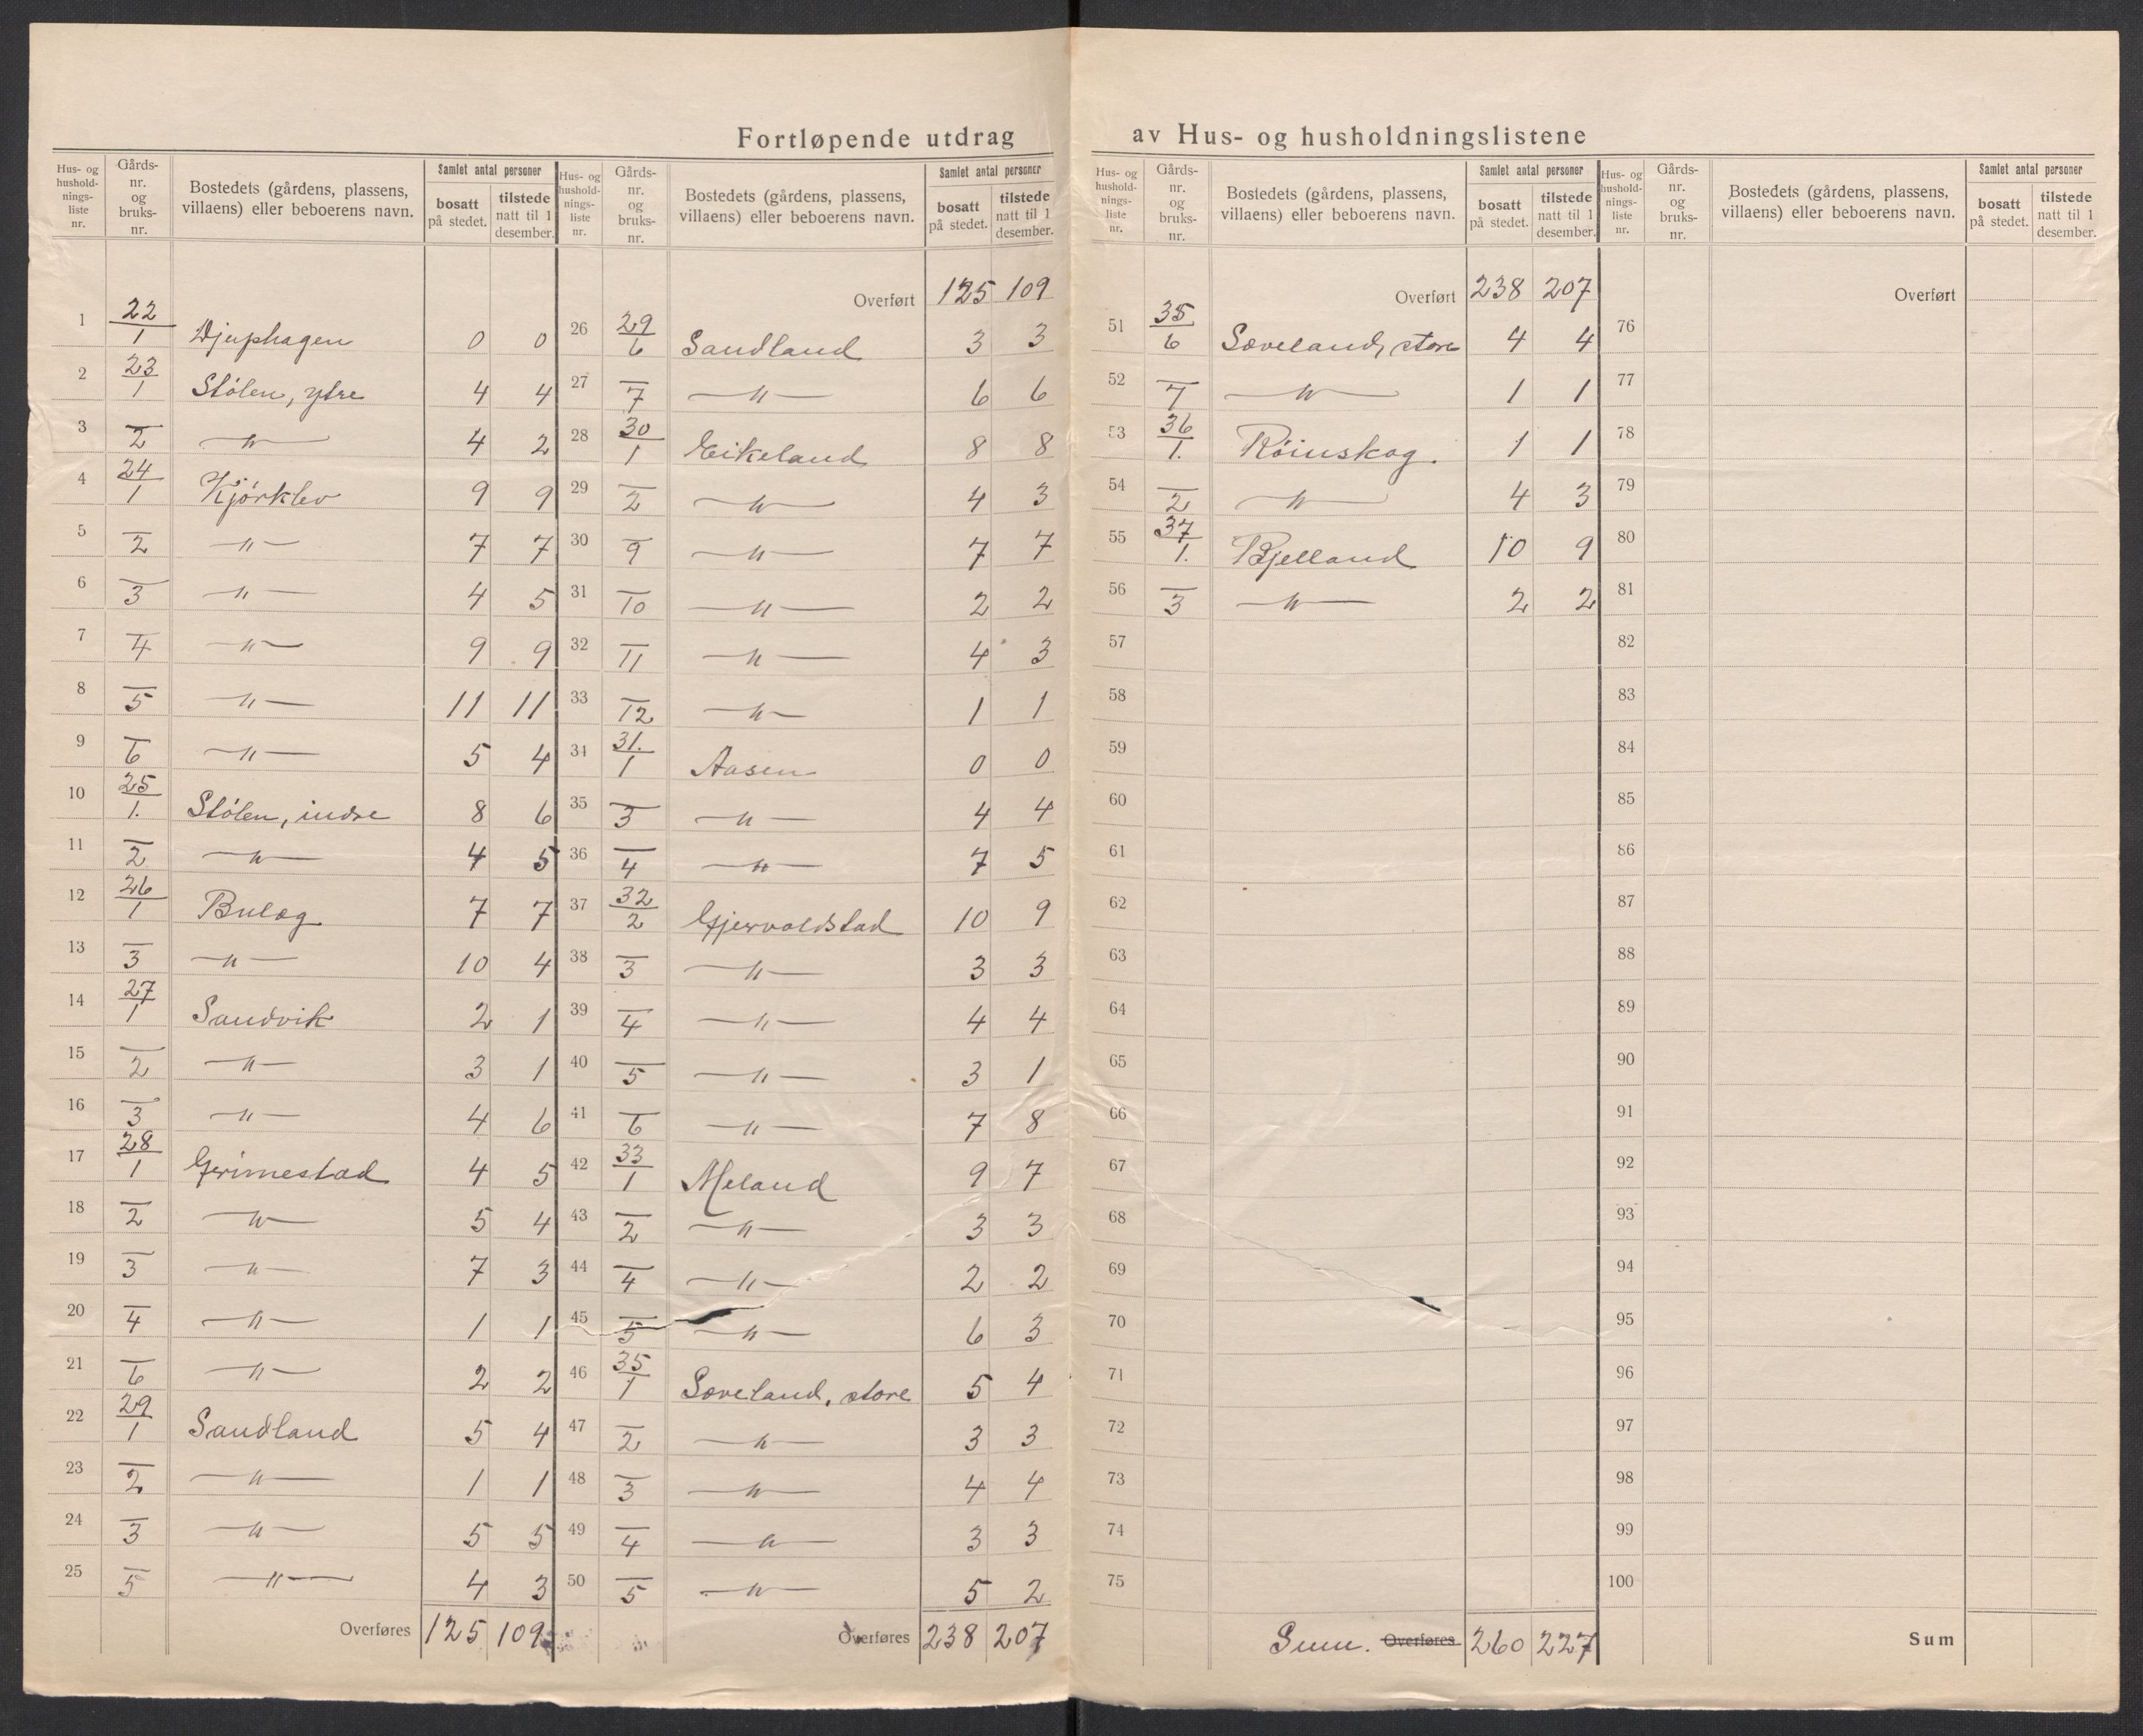 Fortløpende utdrag av Hus- og husholdningslistene
Hus- og hushold-nings-liste nr. | Gårds-nr. og bruks-nr. | Bostedets (gårdens, plassens, villaens) eller beboerens navn. | Samlet antal personer | bosatt på stedet. | tilstede natt til 1 desember.
1 22/1 Djuphagen 0 0
2 23/1 Stølen, ytre 4 4
3 /2 —"— 4 2
4 24/1 Kjörklev 9 9
5 /2 —"— 7 7
6 /3 —"— 4 5
7 /4 —"— 9 9
8 /5 —"— 11 11
9 /6 —"— 5 4
10 25/1. Stølen, indre 8 6
11 /2 —"— 4 5
12 26/1 Bulæg 7 7
13 /3 —"— 10 4
14 27/1 Sandvik 2 1
15 /2 —"— 3 1
16 /3 —"— 4 6
17 28/1 Grimestad 4 5
18 /2 —"— 5 4
19 /3 —"— 7 3
20 /4 —"— 1 1
21 /6 —"— 2 2
22 29/1 Sandland 5 4
23 /2 —"— 1 1
24 /3 —"— 5 5
25 /5 —"— 4 3
Overføres 125 109
Hus- og hushold-nings-liste nr. | Gårds-nr. og bruks-nr. | Bostedets (gårdens, plassens, villaens) eller beboerens navn. | Samlet antal personer | bosatt på stedet. | tilstede natt til 1 desember.
Overført 125 109
26 29/6 Sandland 3 3
27 /7 —"— 6 6
28 30/1 Eikeland 8 8
29 /2 —"— 4 3
30 /9 —"— 7 7
31 /10 —"— 2 2
32 /11 —"— 4 3
33 /12 —"— 1 1
34 31./1 Aasen 0 0
35 /3 —"— 4 4
36 /4 —"— 7 5
37 32/2 Gjervoldstad 10 9
38 /3 —"— 3 3
39 /4 —"— 4 4
40 /5 —"— 3 1
41 /6 —"— 7 8
42 33/1 Meland 9 7
43 /2 —"— 3 3
44 /4 —"— 2 2
45 /5 —"— 6 3
46 35/1 Sæveland, store 5 4
47 /2 —"— 3 3
48 /3 —"— 4 4
49 /4 —"— 3 3
50 /5 —"— 5 2
Overføres 238 207
Hus- og hushold-nings-liste nr. | Gårds-nr. og bruks-nr. | Bostedets (gårdens, plassens, villaens) eller beboerens navn. | Samlet antal personer | bosatt på stedet. | tilstede natt til 1 desember.
Overført 238 207
51 35/6 Sæveland, store 4 4
52 /7 —"— 1 1
53 36/1. Röinskog. 1 1
54 /2 —"— 4 3
55 37/1. Bjelland 10 9
56 /3 —"— 2 2
57
58
59
60
61
62
63
64
65
66
67
68
69
70
71
72
73
74
75
Sum. Overføres 260 227
Hus- og hushold-nings-liste nr. | Gårds-nr. og bruks-nr. | Bostedets (gårdens, plassens, villaens) eller beboerens navn. | Samlet antal personer | bosatt på stedet. | tilstede natt til 1 desember.
Overført
76
77
78
79
80
81
82
83
84
85
86
87
88
89
90
91
92
93
94
95
96
97
98
99
100
Sum